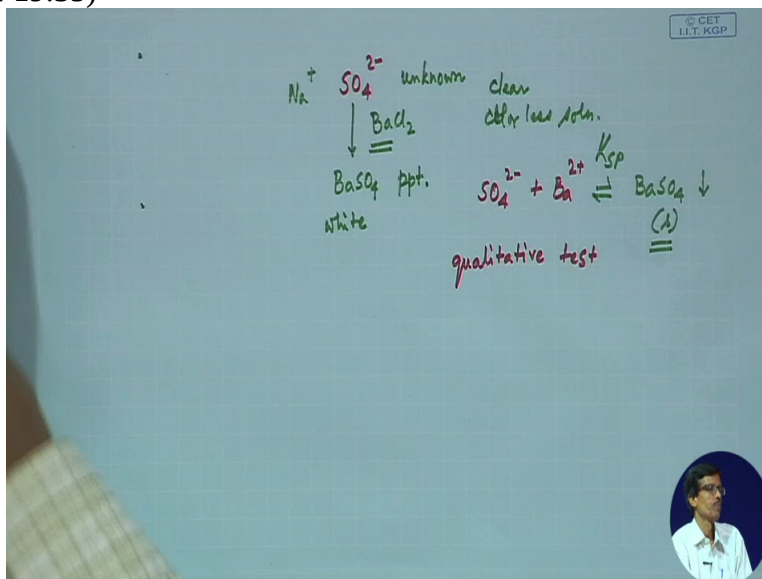 © CET
I.I.T. KGP
Na⁺ SO₄²⁻ unknown clear
colorless soln.
BaCl₂
BaSO₄ ppt.
white
SO₄²⁻ + Ba²⁺ ⇌ BaSO₄ ↓
Ksp
(s)
qualitative test